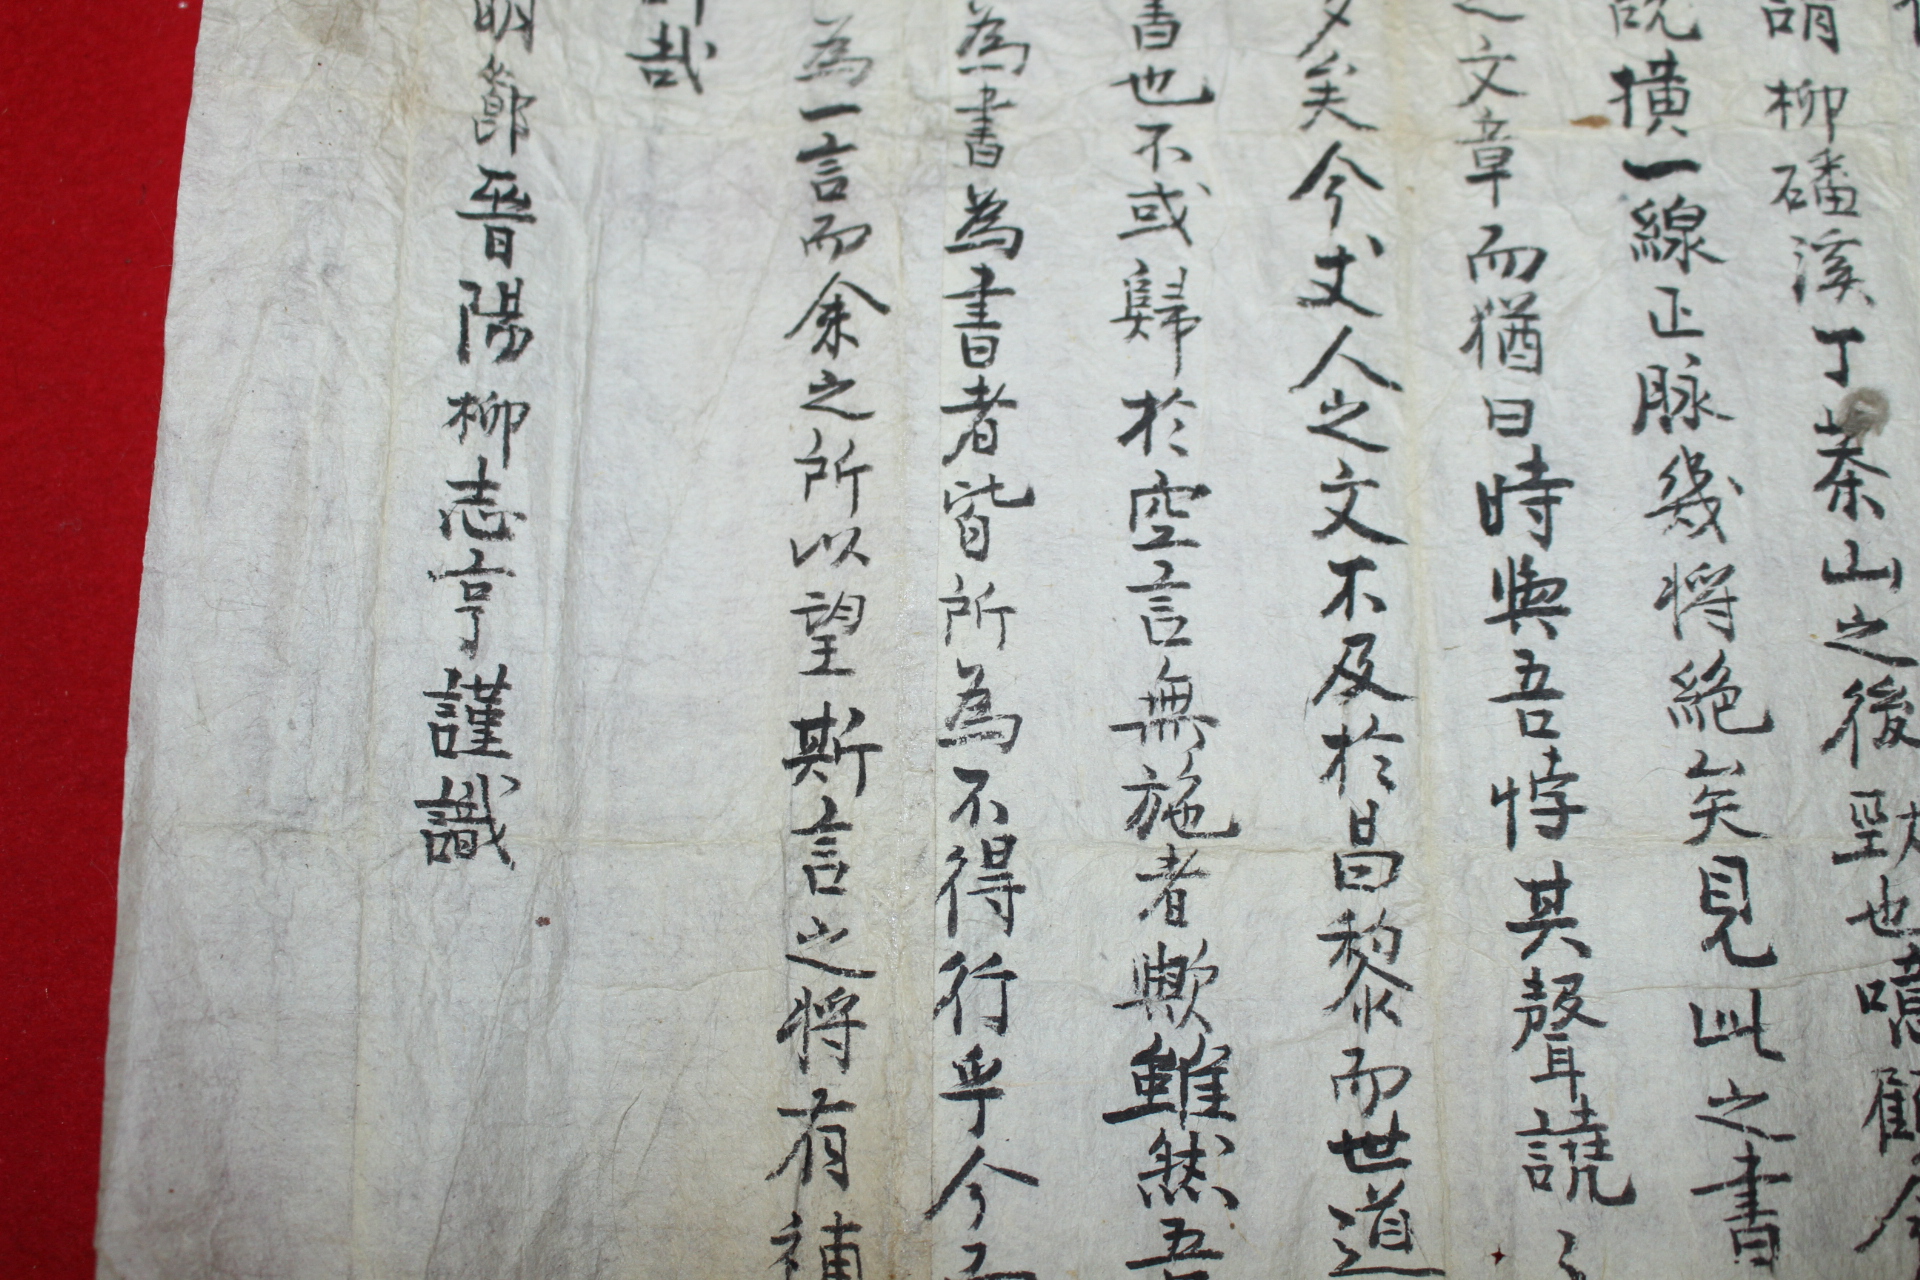 謂柳磻溪丁茶山之後勁也噫顧今
說橫一線正脉幾將絶矣見此之書
之文章而猶曰時與吾悖其聲譊〻
多矣今丈人之文不及於昌黎而世道
書也不或歸於空言無施者歟雖然吾
為書為書者皆所為不得行乎今而
為一言而余之所以望斯言之將有補
哉
明節晋陽柳志亨謹識